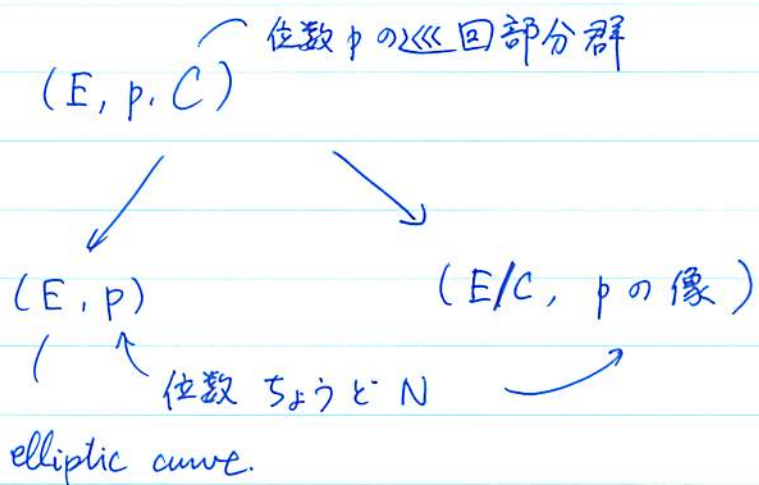 位数 p の巡回部分群
(E, p, C)
(E, p)
(E/C, p の像)
位数 ちょうど N
elliptic curve.